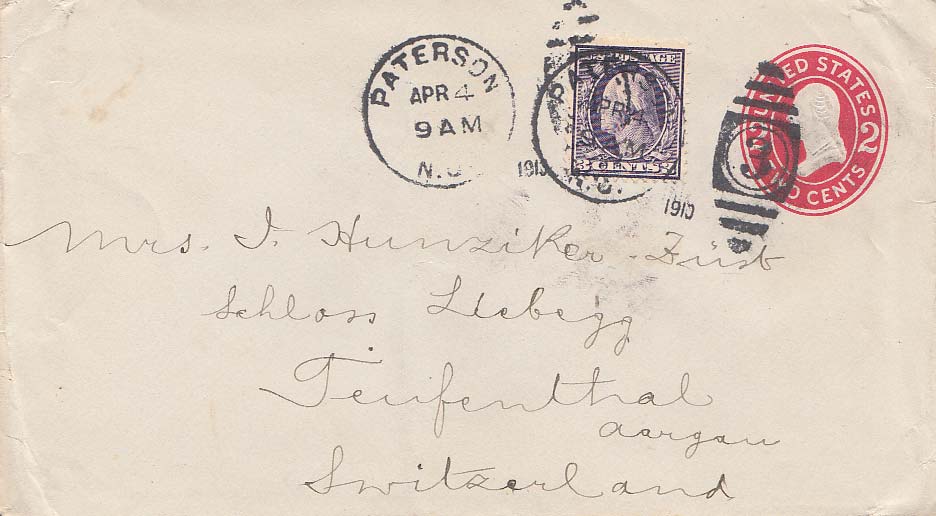 PATERSON
APR 4
9 AM
N.J.
1910
PATERSON
APR 4
AM
N.J.
1910
POSTAGE
3 CENTS 3
UNITED STATES
2
TWO CENTS
Mrs. I. Hunziker-Züst
Schloss Liebegg
Teufenthal
Aargau
Switzerland